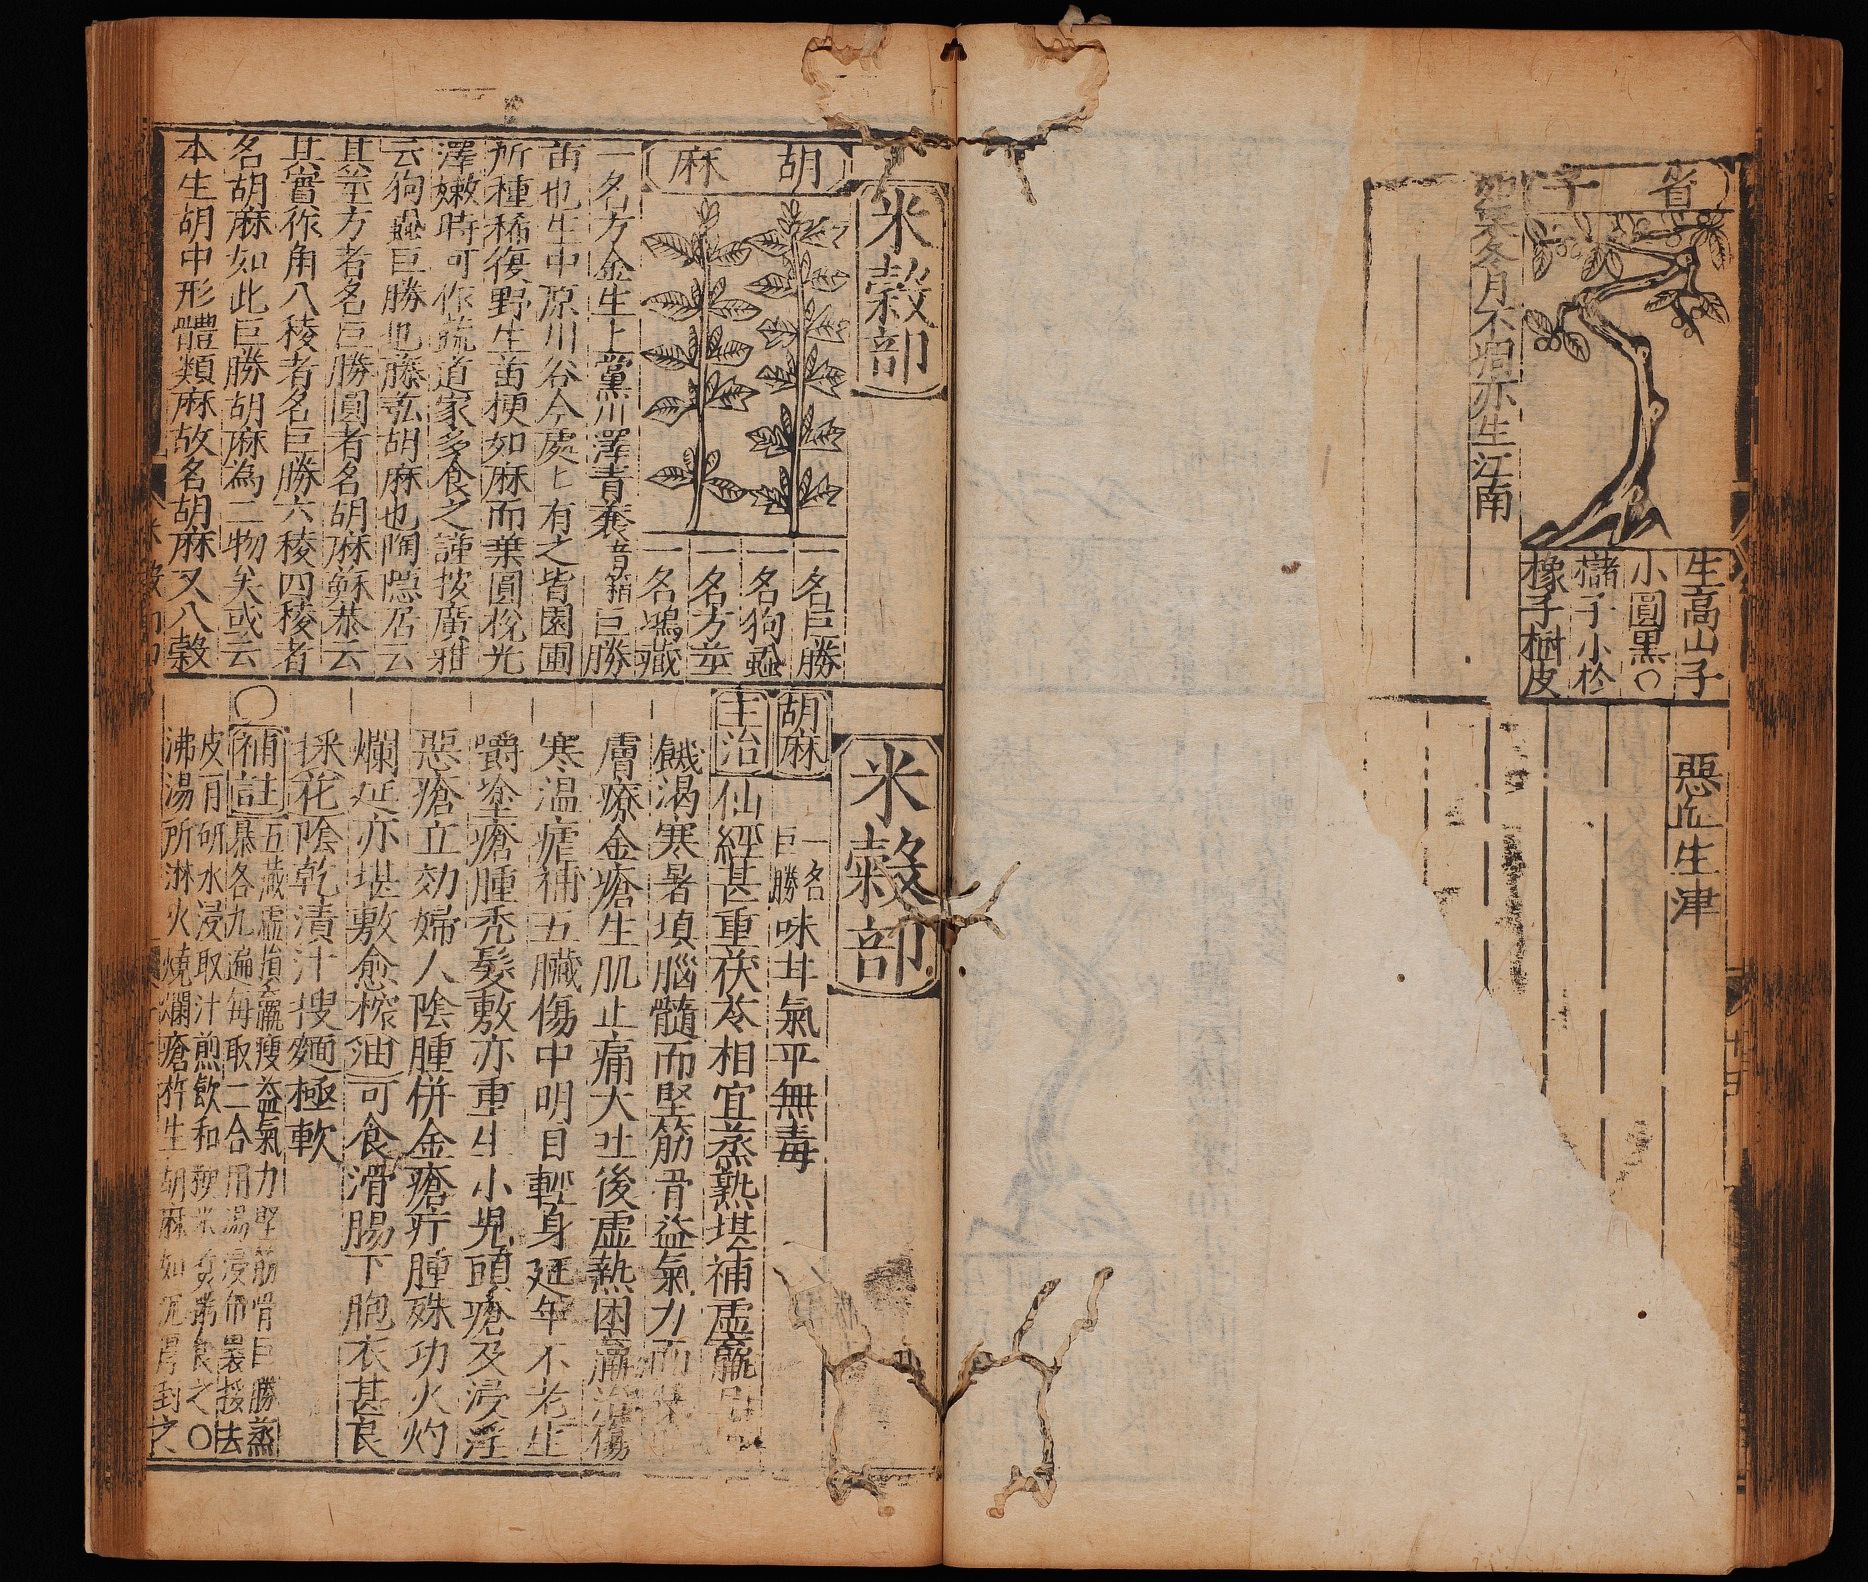 子
生高山子
小圓黑〇
櫧子小於
橡子樹皮
冬月不凋亦生江南
惡止生津
米穀部
胡麻
一名巨勝
一名狗蝨
一名方莖
一名鴻藏
一名方金生上黨川澤青蘘音箱巨勝
苗也生中原川谷今處〻有之皆園圃
所種稀復野生苗梗如麻而葉圓銳光
澤嫩時可作蔬道家多食之謹按廣雅
云狗蝨巨勝也藤弘胡麻也陶隱居云
其莖方者名巨勝圓者名胡麻蘇恭云
其實作角八稜者名巨勝六稜四稜者
名胡麻如此巨勝胡麻為二物矣或云
本生胡中形體類麻故名胡麻又八穀
米穀部
胡麻
一名
巨勝
味甘氣平無毒
主治
仙經甚重茯苓相宜蒸熟堪補虛羸
饑渴寒暑填腦髓而堅筋骨益氣力而
膚療金瘡生肌止痛大吐後虛熱困羸治傷
寒溫瘧補五臟傷中明目輕身延年不老生
嚼塗瘡腫禿髮敷亦重生小兒頭瘡及浸淫
惡瘡立効婦人陰腫併金瘡疔腫殊功火灼
爛延亦堪敷愈榨油可食滑腸下胞衣甚良
採花陰乾漬汁搜麵極軟
〇
補註
五臟虛損羸瘦益氣力堅筋骨巨勝蒸
暴各九遍每取二合用湯浸布裹挼去
皮再研水浸取汁煎飲和粳米煮粥食之〇
沸湯所淋火燒爛瘡杵生胡麻如泥厚封之